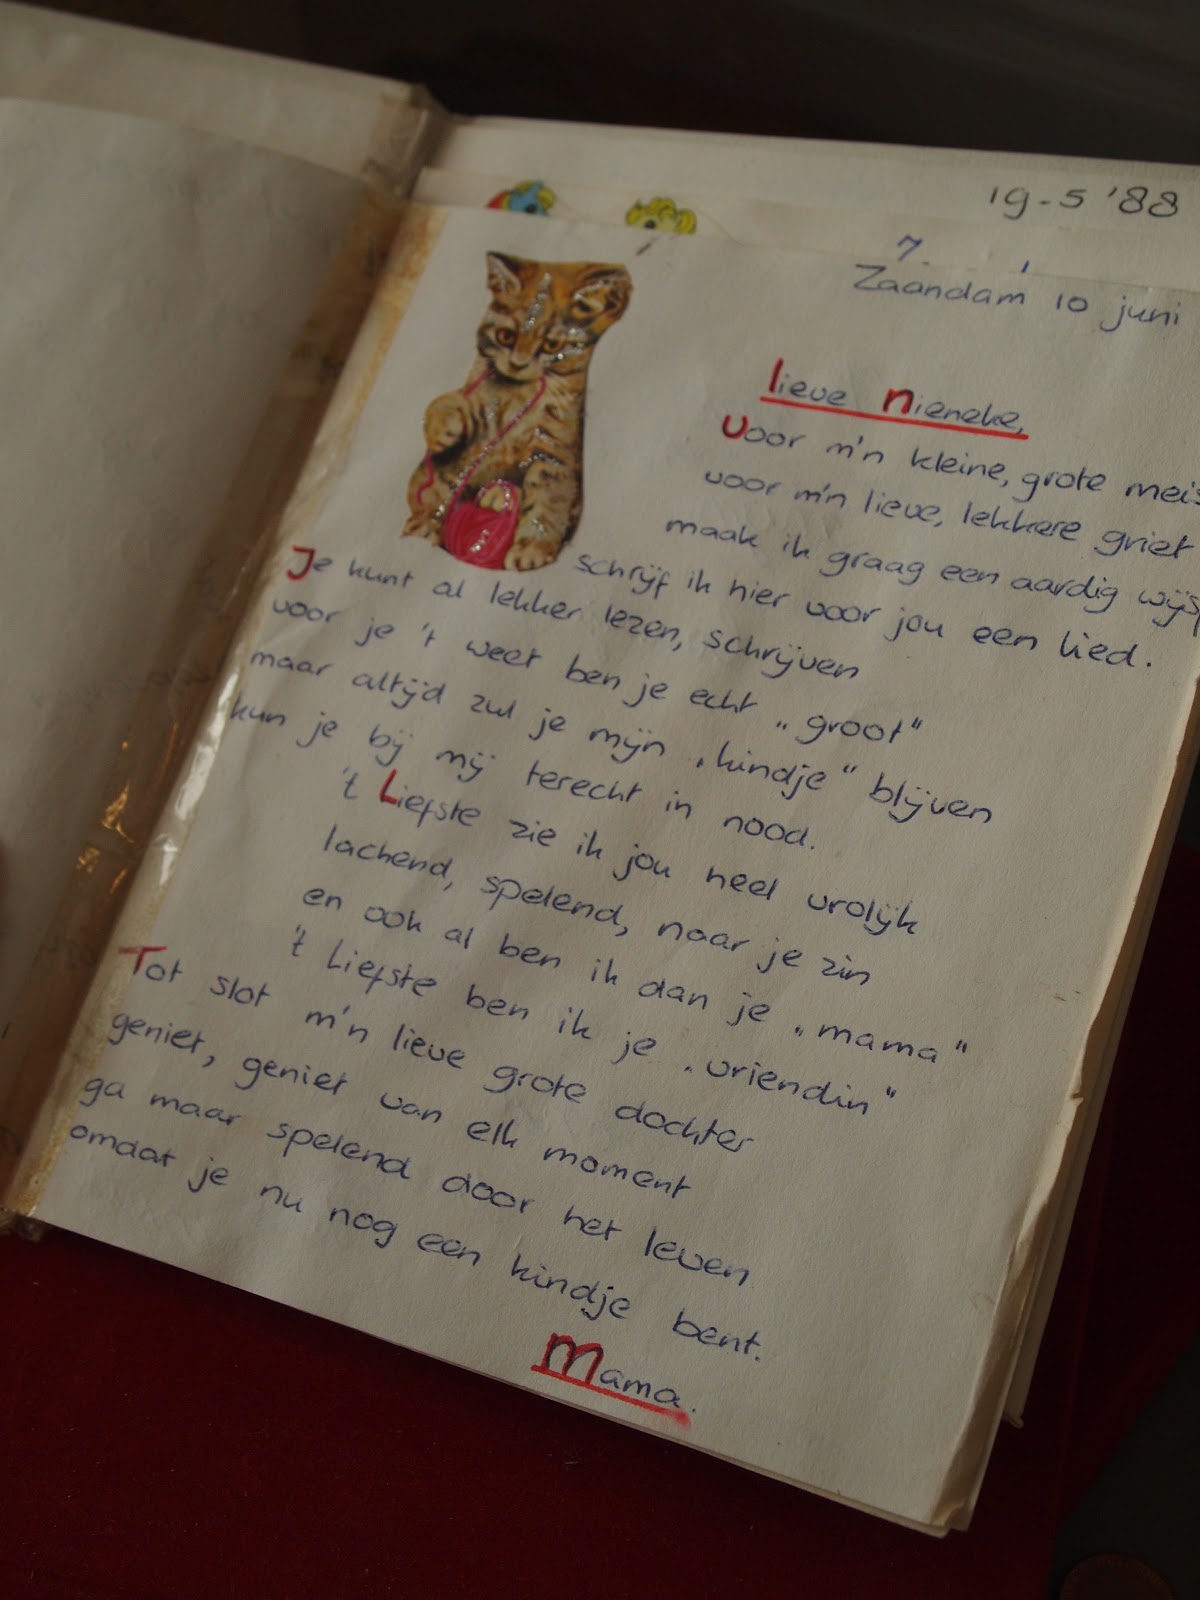 19-5 '88
7.
Zaandam 10 juni
lieve nieneke,
Voor m'n kleine, grote meis
voor m'n lieve, lekkere griet
maak ik graag een aardig wijs
schrijf ik hier voor jou een lied.
Je kunt al lekker lezen, schrijven
voor je 't weet ben je echt „groot"
maar altijd zul je mijn „kindje" blijven
kun je bij mij terecht in nood.
't Liefste zie ik jou heel vrolijk
lachend, spelend, naar je zin
en ook al ben ik dan je „mama"
't Liefste ben ik je „vriendin"
Tot slot m'n lieve grote dochter
geniet, geniet van elk moment
ga maar spelend door het leven
omdat je nu nog een kindje bent.
Mama.